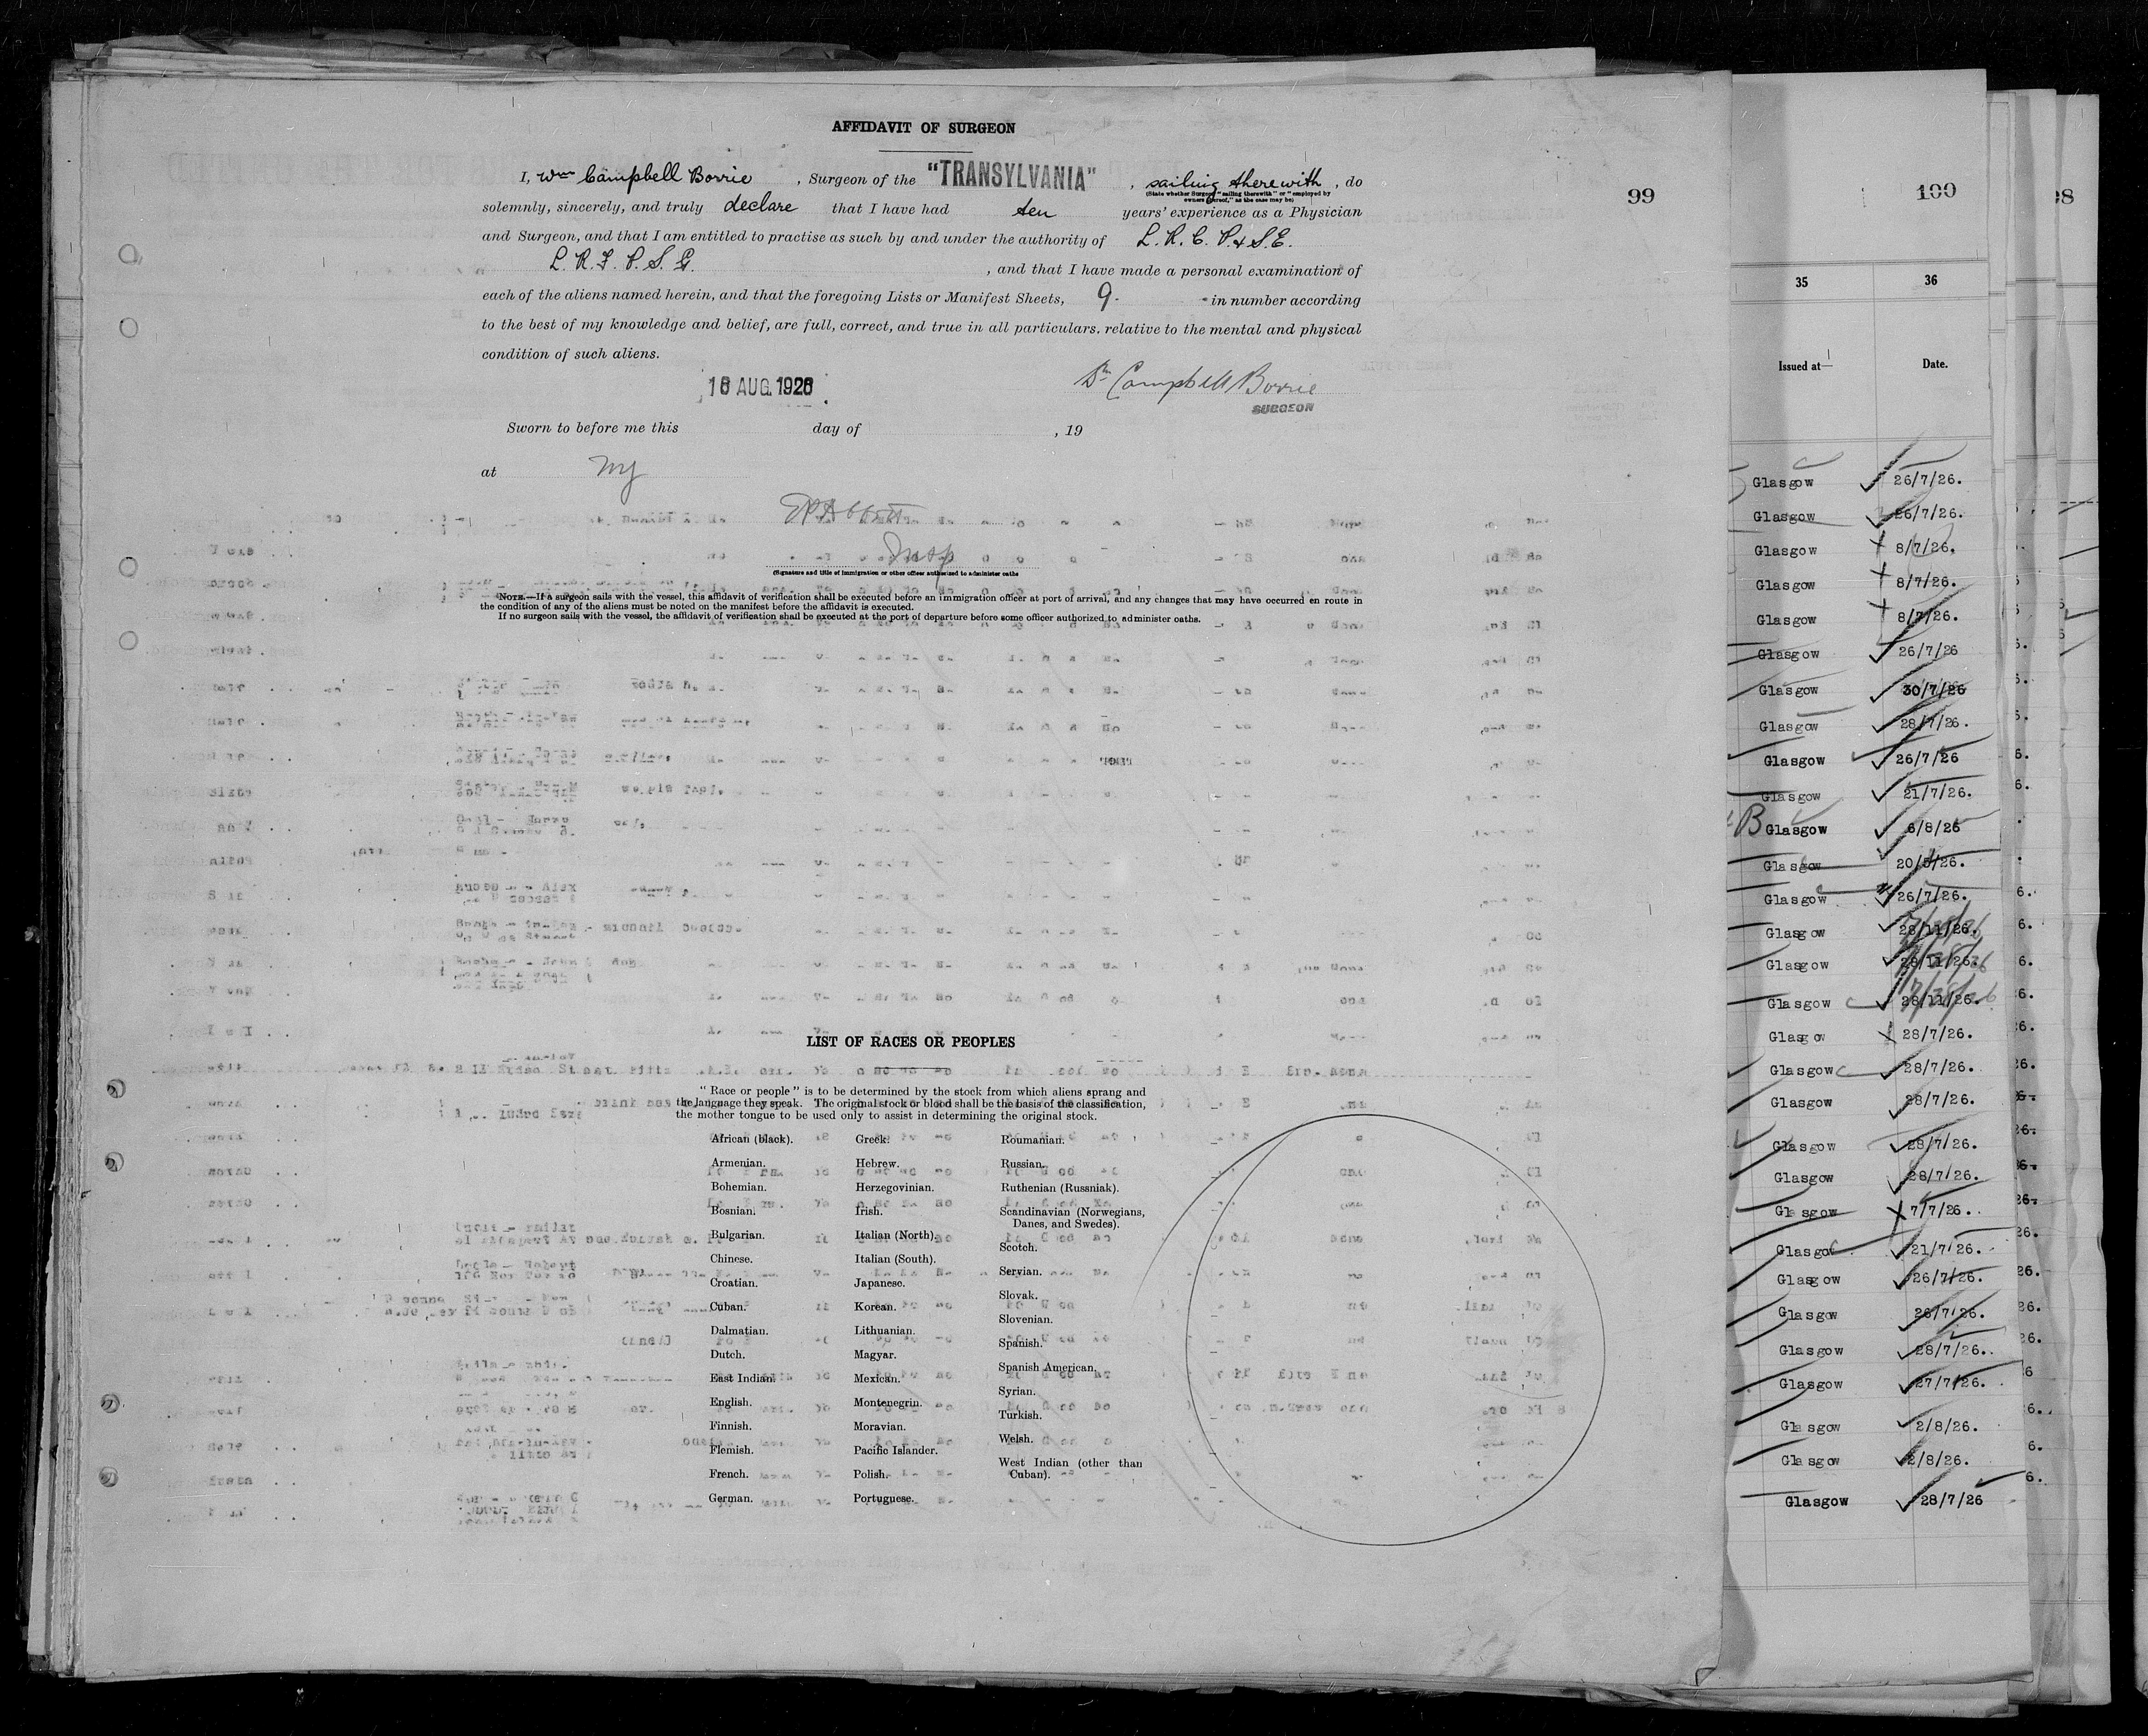 AFFIDAVIT OF SURGEON
I, Wm Campbell Borrie, Surgeon of the "TRANSYLVANIA", sailing therewith, do
(State whether Surgeon "sailing therewith" or "employed by
owners thereof," as the case may be)
solemnly, sincerely, and truly declare that I have had ten years' experience as a Physician
and Surgeon, and that I am entitled to practise as such by and under the authority of L. R. C. P. & S. E.
L. R. F. P. S. G. , and that I have made a personal examination of
each of the aliens named herein, and that the foregoing Lists or Manifest Sheets, 9 - in number according
to the best of my knowledge and belief, are full, correct, and true in all particulars. relative to the mental and physical
condition of such aliens.
16 AUG. 1926
Wm Campbell Borrie
SURGEON
Sworn to before me this day of , 19
at NY
EP Abbott
Insp
(Signature and title of immigration or other officer authorized to administer oaths
NOTE.—If a surgeon sails with the vessel, this affidavit of verification shall be executed before an immigration officer at port of arrival, and any changes that may have occurred en route in
the condition of any of the aliens must be noted on the manifest before the affidavit is executed.
If no surgeon sails with the vessel, the affidavit of verification shall be executed at the port of departure before some officer authorized to administer oaths.
LIST OF RACES OR PEOPLES
"Race or people" is to be determined by the stock from which aliens sprang and
the language they speak. The original stock or blood shall be the basis of the classification,
the mother tongue to be used only to assist in determining the original stock.
African (black).
Armenian.
Bohemian.
Bosnian.
Bulgarian.
Chinese.
Croatian.
Cuban.
Dalmatian.
Dutch.
East Indian.
English.
Finnish.
Flemish.
French.
German.
Greek.
Hebrew.
Herzegovinian.
Irish.
Italian (North).
Italian (South).
Japanese.
Korean.
Lithuanian.
Magyar.
Mexican.
Montenegrin.
Moravian.
Pacific Islander.
Polish.
Portuguese.
Roumanian.
Russian.
Ruthenian (Russniak).
Scandinavian (Norwegians,
Danes, and Swedes).
Scotch.
Servian.
Slovak.
Slovenian.
Spanish.
Spanish American.
Syrian.
Turkish.
Welsh.
West Indian (other than
Cuban).
99
100
35 36
Issued at— Date.
Glasgow 26/7/26.
Glasgow 26/7/26.
Glasgow 8/7/26.
Glasgow 8/7/26.
Glasgow 8/7/26.
Glasgow 26/7/26
Glasgow 30/7/26
Glasgow 28/7/26.
Glasgow 26/7/26
Glasgow 21/7/26.
B Glasgow 6/8/26
Glasgow 20/5/26.
Glasgow 26/7/26.
Glasgow 28/11/26.
Glasgow 28/11/26.
Glasgow 28/11/26.
Glasgow 28/7/26.
Glasgow 28/7/26.
Glasgow 28/7/26.
Glasgow 28/7/26.
Glasgow 28/7/26.
Glasgow 7/7/26.
Glasgow 21/7/26.
Glasgow 26/7/26.
Glasgow 26/7/26.
Glasgow 28/7/26.
Glasgow 27/7/26.
Glasgow 2/8/26.
Glasgow 2/8/26.
Glasgow 28/7/26